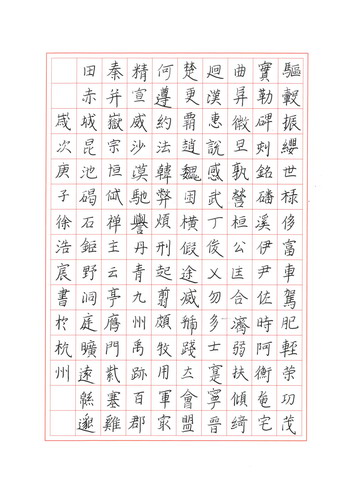 驅轂振纓世祿侈富車駕肥輕策功茂
實勒碑刻銘磻溪伊尹佐時阿衡奄宅
曲阜微旦孰營桓公匡合濟弱扶傾綺
迴漢惠說感武丁俊乂勿多士寔寧晉
楚更霸趙魏困橫假途滅虢踐土會盟
何遵約法韓弊煩刑起翦頗牧用軍最
精宣威沙漠馳譽丹青九州禹跡百郡
秦并嶽宗恒岱禪主云亭雁門紫塞雞
田赤城昆池碣石鉅野洞庭曠遠緜邈
歲次庚子徐浩宸書於杭州